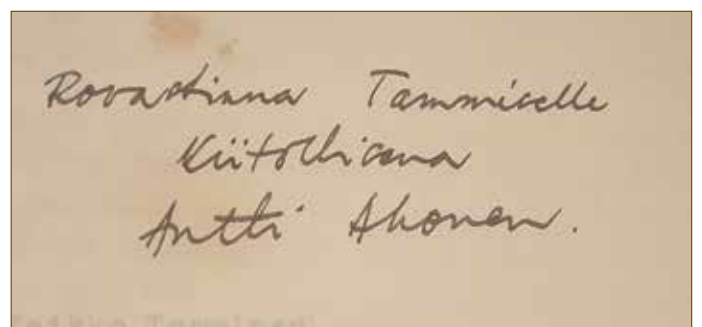 Rovastinna Tammiselle
Kiitollisena
Antti Ahonen.